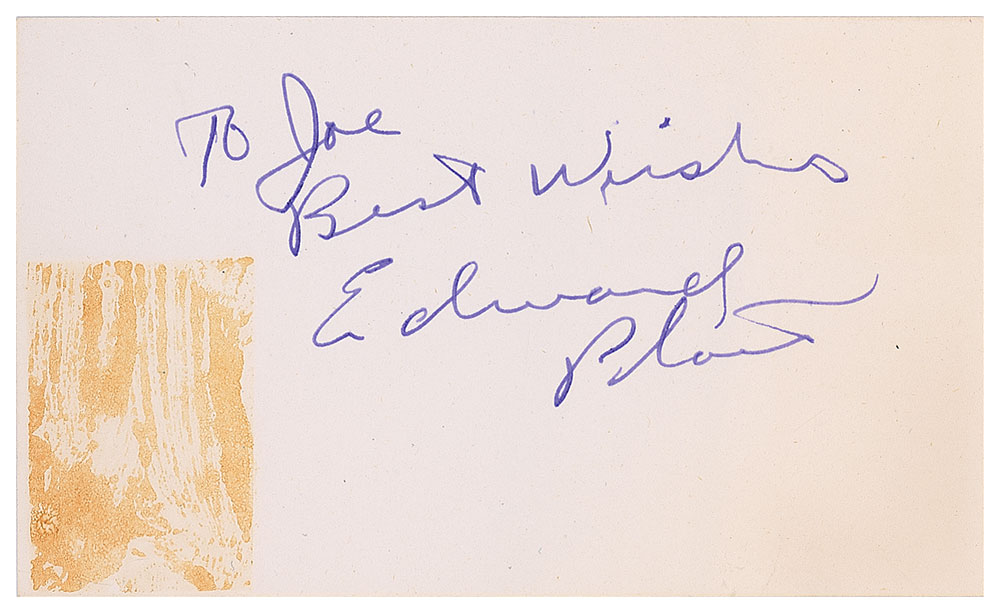 To Joe
Best Wishes
Edward
Platt